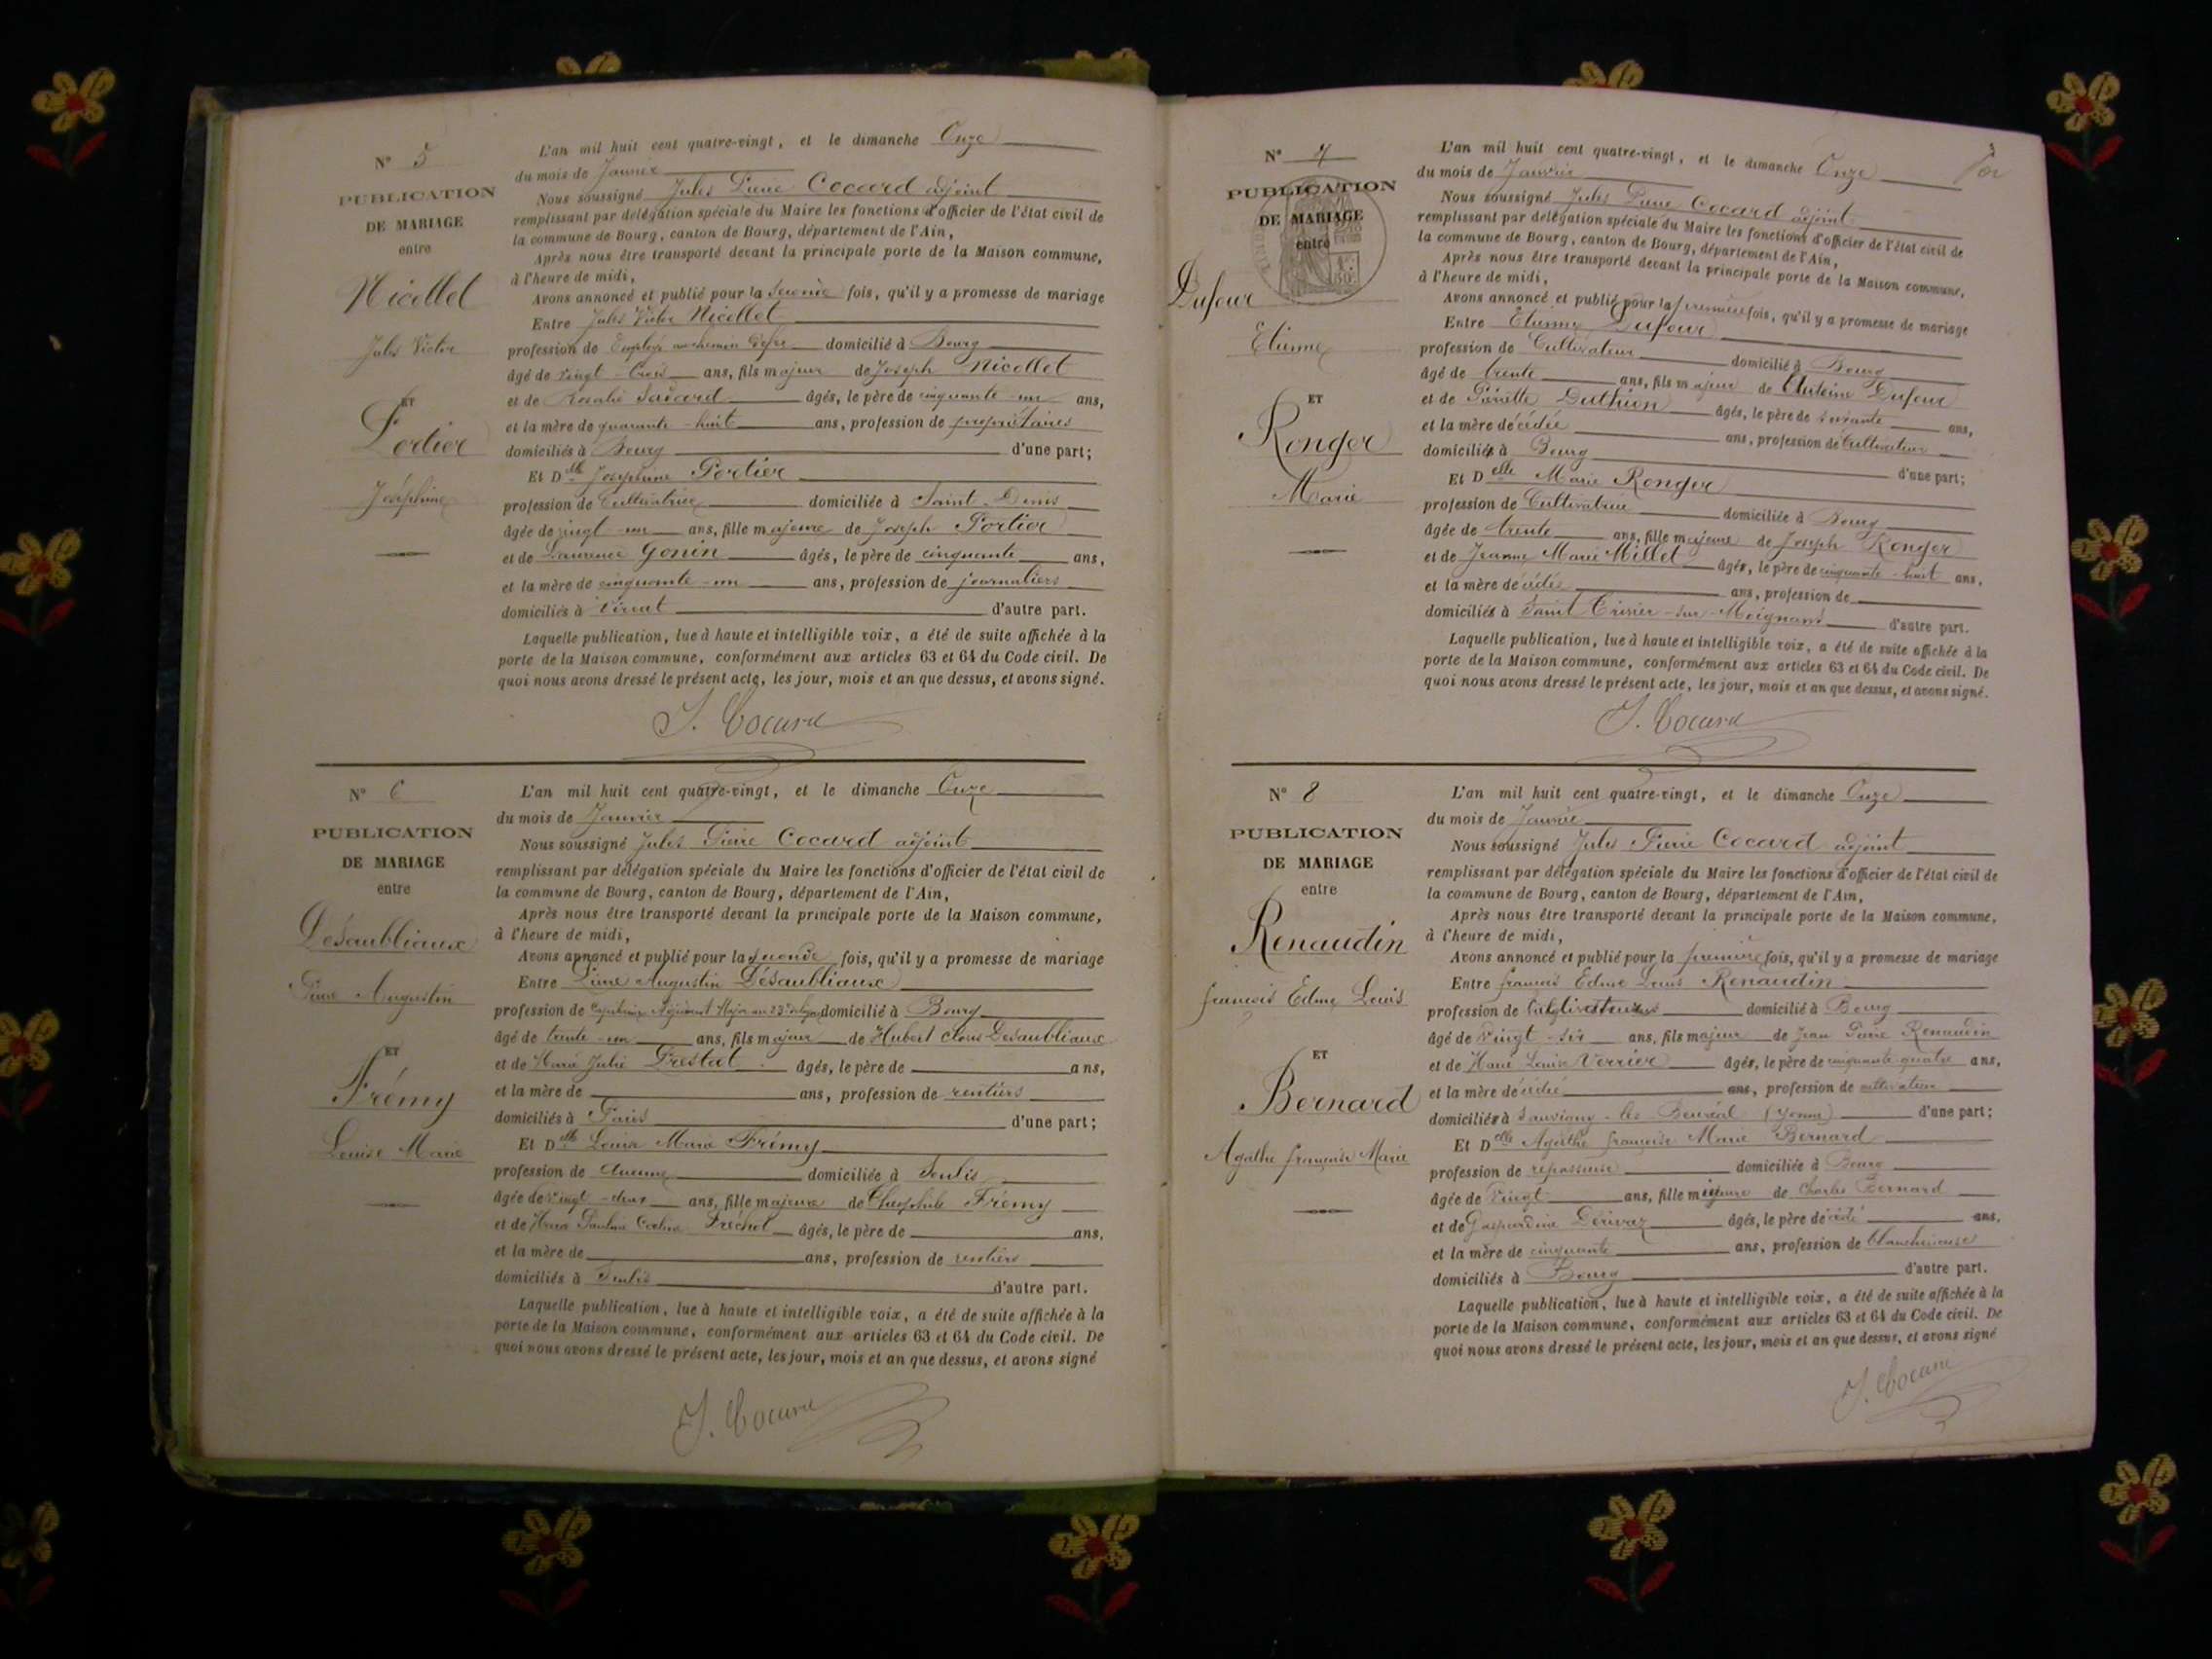 N° 5
PUBLICATION
DE MARIAGE
entre
Nicollet
Jules Victor
ET
Portier
Joséphine
L'an mil huit cent quatre-vingt, et le dimanche Onze
du mois de Janvier
Nous soussigné Jules Pierre Cocard adjoint
remplissant par délégation spéciale du Maire les fonctions d'officier de l'état civil de
la commune de Bourg, canton de Bourg, département de l'Ain,
Après nous être transporté devant la principale porte de la Maison commune,
à l'heure de midi,
Avons annoncé et publié pour la seconde fois, qu'il y a promesse de mariage
Entre Jules Victor Nicollet
profession de Employé au chemin de fer domicilié à Bourg
âgé de vingt-trois ans, fils majeur de Joseph Nicollet
et de Rosalie âgés, le père de cinquante-un ans,
et la mère de quarante-huit ans, profession de propriétaires
domiciliés à Bourg d'une part;
Et Delle Joséphine Portier
profession de Cultivatrice domiciliée à Saint-Denis
âgée de vingt-un ans, fille majeure de Joseph Portier
et de Laurence Gonin âgés, le père de cinquante ans,
et la mère de cinquante-un ans, profession de journaliers
domiciliés à Viriat d'autre part.
Laquelle publication, lue à haute et intelligible voix, a été de suite affichée à la
porte de la Maison commune, conformément aux articles 63 et 64 du Code civil. De
quoi nous avons dressé le présent acte, les jour, mois et an que dessus, et avons signé.
J. Cocard
N° 6
PUBLICATION
DE MARIAGE
entre
Désaubliaux
Pierre Augustin
ET
Frémy
Louise Marie
L'an mil huit cent quatre-vingt, et le dimanche Onze
du mois de Janvier
Nous soussigné Jules Pierre Cocard adjoint
remplissant par délégation spéciale du Maire les fonctions d'officier de l'état civil de
la commune de Bourg, canton de Bourg, département de l'Ain,
Après nous être transporté devant la principale porte de la Maison commune,
à l'heure de midi,
Avons annoncé et publié pour la seconde fois, qu'il y a promesse de mariage
Entre Pierre Augustin Désaubliaux
profession de Capitaine Adjudant Major au 23e de ligne domicilié à Bourg
âgé de trente-un ans, fils majeur de Hubert Désaubliaux
et de Marie Julie Prestat âgés, le père de ans,
et la mère de ans, profession de rentiers
domiciliés à Paris d'une part;
Et Delle Louise Marie Frémy
profession de Aucune domiciliée à Senlis
âgée de vingt-deux ans, fille majeure de Théophile Frémy
et de Fréchot âgés, le père de ans,
et la mère de ans, profession de rentiers
domiciliés à Senlis d'autre part.
Laquelle publication, lue à haute et intelligible voix, a été de suite affichée à la
porte de la Maison commune, conformément aux articles 63 et 64 du Code civil. De
quoi nous avons dressé le présent acte, les jour, mois et an que dessus, et avons signé
J. Cocard
N° 7
PUBLICATION
DE MARIAGE
entre
Dufour
Etienne
ET
Ronger
Marie
L'an mil huit cent quatre-vingt, et le dimanche Onze
du mois de Janvier
Nous soussigné Jules Pierre Cocard adjoint
remplissant par délégation spéciale du Maire les fonctions d'officier de l'état civil de
la commune de Bourg, canton de Bourg, département de l'Ain,
Après nous être transporté devant la principale porte de la Maison commune,
à l'heure de midi,
Avons annoncé et publié pour la première fois, qu'il y a promesse de mariage
Entre Etienne Dufour
profession de Cultivateur domicilié à Bourg
âgé de trente ans, fils majeur de Antoine Dufour
et de Pierrette Duthion âgés, le père de soixante ans,
et la mère décédée ans, profession de Cultivateur
domiciliés à Bourg d'une part;
Et Delle Marie Ronger
profession de Cultivatrice domiciliée à Bourg
âgée de trente ans, fille majeure de Joseph Ronger
et de Jeanne Marie Millet âgés, le père de cinquante-huit ans,
et la mère décédée ans, profession de
domiciliés à Saint Trivier-sur-Moignans d'autre part.
Laquelle publication, lue à haute et intelligible voix, a été de suite affichée à la
porte de la Maison commune, conformément aux articles 63 et 64 du Code civil. De
quoi nous avons dressé le présent acte, les jour, mois et an que dessus, et avons signé.
J. Cocard
N° 8
PUBLICATION
DE MARIAGE
entre
Renaudin
françois Edme Louis
ET
Bernard
Agathe françoise Marie
L'an mil huit cent quatre-vingt, et le dimanche Onze
du mois de Janvier
Nous soussigné Jules Pierre Cocard adjoint
remplissant par délégation spéciale du Maire les fonctions d'officier de l'état civil de
la commune de Bourg, canton de Bourg, département de l'Ain,
Après nous être transporté devant la principale porte de la Maison commune,
à l'heure de midi,
Avons annoncé et publié pour la première fois, qu'il y a promesse de mariage
Entre françois Edme Louis Renaudin
profession de domicilié à Bourg
âgé de vingt-six ans, fils majeur de Jean Pierre Renaudin
et de Marie Louise Verrier âgés, le père de cinquante-quatre ans,
et la mère décédée ans, profession de cultivateur
domiciliés à Sauvigny-le-Beuréal (Yonne) d'une part;
Et Delle Agathe françoise Marie Bernard
profession de repasseuse domiciliée à Bourg
âgée de vingt ans, fille mineure de Charles Bernard
et de Gaspardine âgés, le père décédé ans,
et la mère de cinquante ans, profession de blanchisseuse
domiciliés à Bourg d'autre part.
Laquelle publication, lue à haute et intelligible voix, a été de suite affichée à la
porte de la Maison commune, conformément aux articles 63 et 64 du Code civil. De
quoi nous avons dressé le présent acte, les jour, mois et an que dessus, et avons signé
J. Cocard